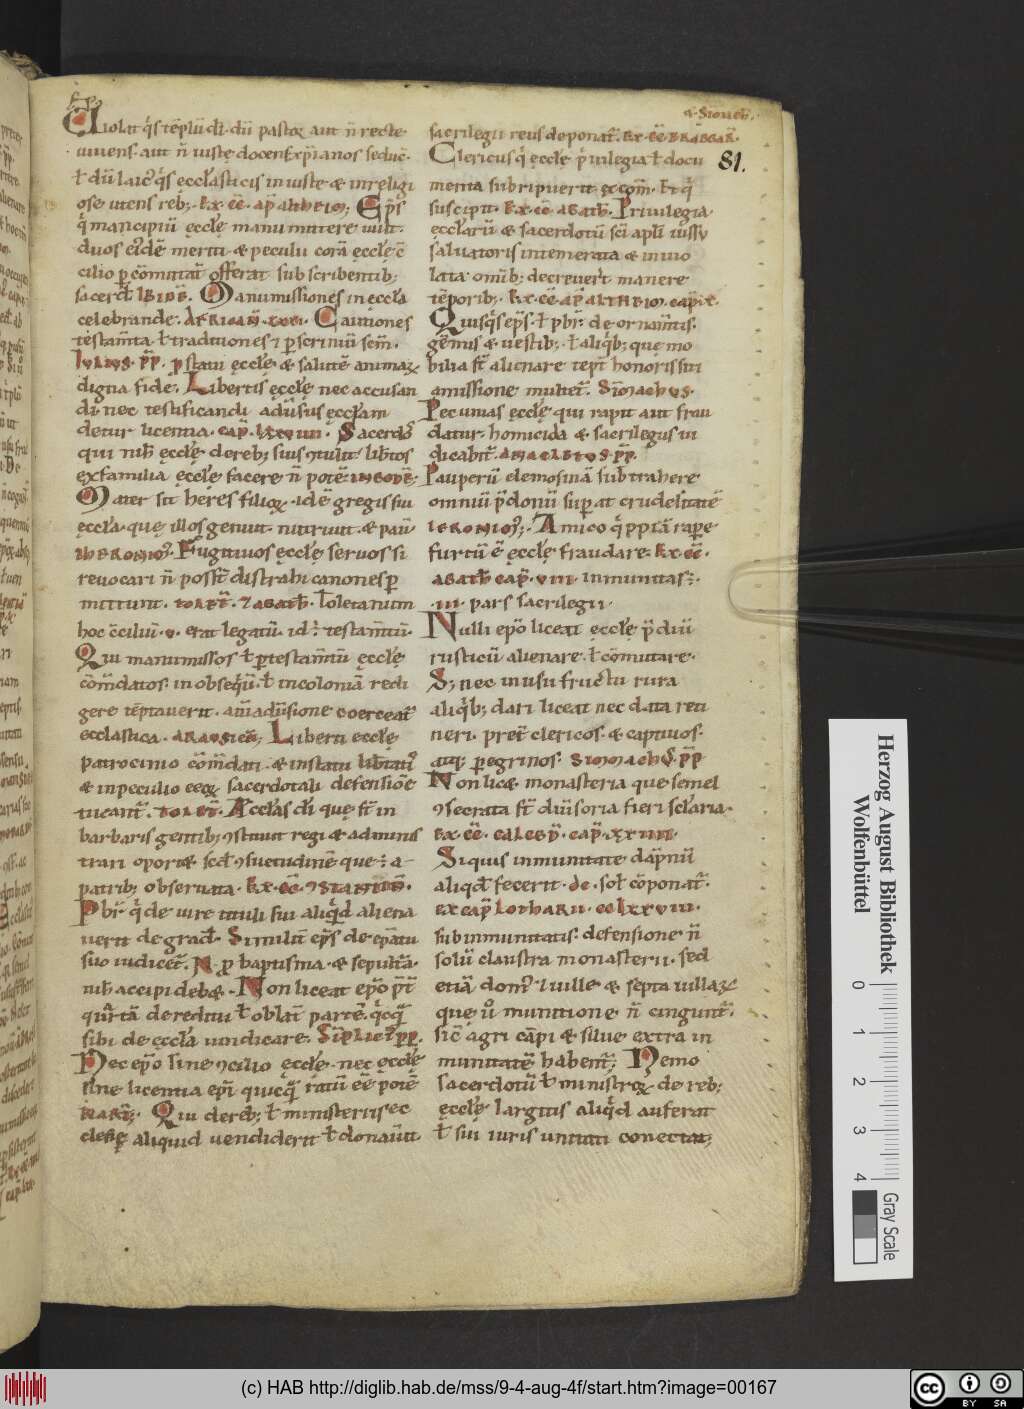 Violat q̇s tēplū dī dū pastor aut n̄ recte
uiuens aut n̄ iuste docens xp̄ianos seduc̄
ł dū laic᷒ q̇s eccl̄asticis iniuste & inreligi
ose utens reb; Ex cc̄ ap̄ altheim; Ep̄s
q̇ mancipiū ęccłę manu mittere uult
duos ei᷒dē meriti & peculii corā ęccłę c̄
cilio p cōmutat̄ offerat subscribentib;
sacerd̄ Manumissiones in eccl̄a
celebrande. Cautiones
testam̄ta ł traditiones
pp̄. statu ęccłę & salutē animaꝝ
digna fide; Libertis ęccłę nec accusan
di nec testificandi adūsus ęccl̄am
detur licentia. cap̄. lxxviiii. Sacerdos
qui nih̄ ęccłę de reb; suis
ex familia ęccłę facere n̄ potē
Mater sit heres filioꝝ idē gregis sui
ęccl̄a quę illos genuit nutriuit &
Fugitiuos ęccłę seruos si
reuocari n̄ poss̄t distrahi canones p
mittunt. Toletanum
hoc c̄ciliū erat legatū testam̄tū
Qui manumissos ł p testam̄tū ęccłę
cōm̄datos in obseq̇ū ł in coloniā redi
gere tēptauerit aīaduersione coerceat̄
ecclastica. Liberti eccłę
patrocinio cōm̄dati & in statu libertat᷒
& in peculio eoꝝ sacerdotali defensiōe
tueant̄. Accl̄as dī que s̄t in
barbaris gentib; ꝯstituit regi & adminis
trari oport& scd̄ ꝯsuetudinē que ē a
patrib; obseruata. Ex cc̄
Pbr̄ q̇ de iure tituli sui aliq̇d aliena
uerit degrad̄. Similit̄ ep̄s de ep̄atu
suo iudicet̄. p baptisma & sepult̄a
nih̄ accipi deb&. Non liceat ep̄o
quartā dereditū ł oblat̄ parte
sibi de ęccl̄a uindicare. Simplic᷒ pp̄.
Nec ep̄o sine ꝯcilio ęccłę nec ęccłę
sine licentia ep̄i quicq̄ ratū eē potē
Qui de reb; ł ministeriis ec
clesię aliquid uendiderit ł donau̅it
81.
sacrilegii reus deponat̄. Ex cc̄
Clericus q̇ ęccłę p̄uilegia ł docu
menta subripuerit Et q̇
suscipit. Ex cc̄ agath̄. Priuilegia
ęccl̄arū & sacerdotū sc̄i apl̄i iussu
saluatoris intemerata & inuio
lata omīb; decreuer̄t manere
tēporib; Ex cc̄ ap̄ altheim cap̄
Quisq̇s ep̄s ł pbr̄ de ornam̄tis
gēmis & uestib; ł aliq̇b; quę mo
bilia s̄t alienare tept̄ honoris sui
amissione multet̄. Simachus
Pecunias ęccłę qui rapit aut frau
datur homicida & sacrilegus iu
dicabit̄. Anacletus pp̄.
Pauperū elemosinā subtrahere
omniū p̄donū sup̄at crudelitatē
Ieronim᷒; Amico rapere
furtū ē ęccłę fraudare. Ex cc̄.
agath̄ cap̄. viii. inmunitas
iii pars sacrilegii
Nulli ep̄o liceat ęccłę p̄diū
rusticū alienare ł cōmutare
S; nec in usu fructu rura
aliq̇b; dari liceat nec data reti
neri. pret̄ clericos & captiuos
atq; peregrinos. Simmachus pp̄
Non lic& monasteria que semel
ꝯsecrata s̄t diūsoria fieri sclaria
Ex cc̄ calcep̄. cap̄. xxiiii.
Siquis inmunitate dāpnū
aliqd̄ fecerit. dc. sol̄ cōponat̄.
ex cap̄ lotharii. cclxxviii.
sub inmunitatis defensione n̄
solū claustra monasterii. sed
etiā dom᷒ & uille & septa uillaꝝ
que u̇o munitione n̄ cingunt̄.
sic̄ agri cāpi & silue extra in
munitatē habent̄; Nemo
sacerdotū ł ministroꝝ de reb;
ęccłę largitis aliq̇d auferat
ł sui iuris uniri
Herzog August Bibliothek
Wolfenbüttel
0 1 2 3 4
Gray Scale
(c) HAB http://diglib.hab.de/mss/9-4-aug-4f/start.htm?image=00167
cc BY SA